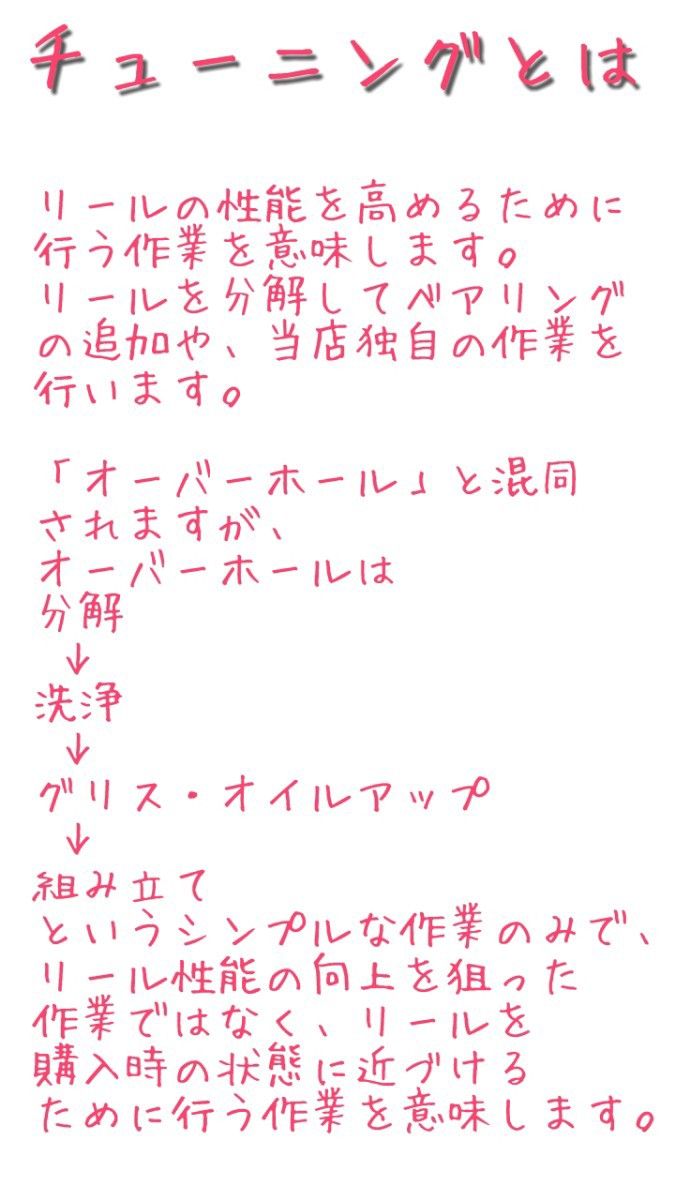 チューニングとは
リールの性能を高めるために
行う作業を意味します。
リールを分解してベアリング
の追加や、当店独自の作業を
行います。
「オーバーホール」と混同
されますが、
オーバーホールは
分解
↓
洗浄
↓
グリス・オイルアップ
↓
組み立て
というシンプルな作業のみで、
リール性能の向上を狙った
作業ではなく、リールを
購入時の状態に近づける
ために行う作業を意味します。